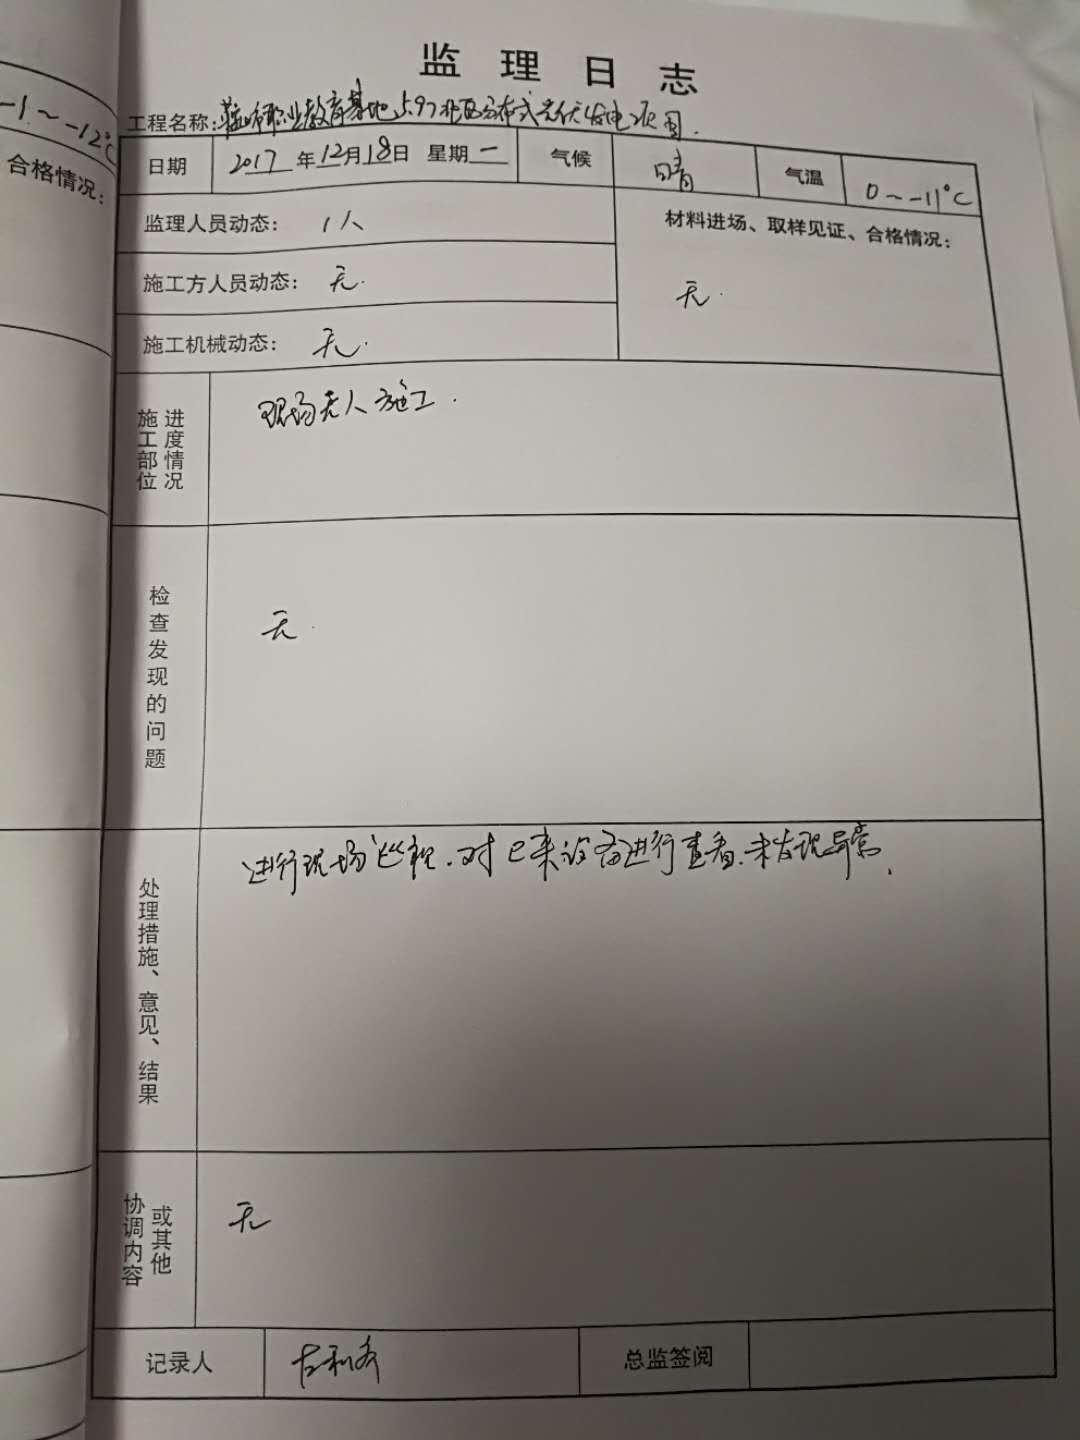 监理日志
工程名称：鞍山市职业教育基地5.97兆瓦分布式光伏发电项目.
日期 2017年12月18日 星期一 气候 晴 气温 0～-11℃
监理人员动态： 1人
材料进场、取样见证、合格情况：
无.
施工方人员动态： 无.
施工机械动态： 无.
施工部位
进度情况
现场无人施工.
检查发现的问题
无.
处理措施、意见、结果
进行现场巡视.对已来设备进行查看.未发现异常.
协调内容
或其他
无
记录人
总监签阅
-1～-12℃
合格情况：